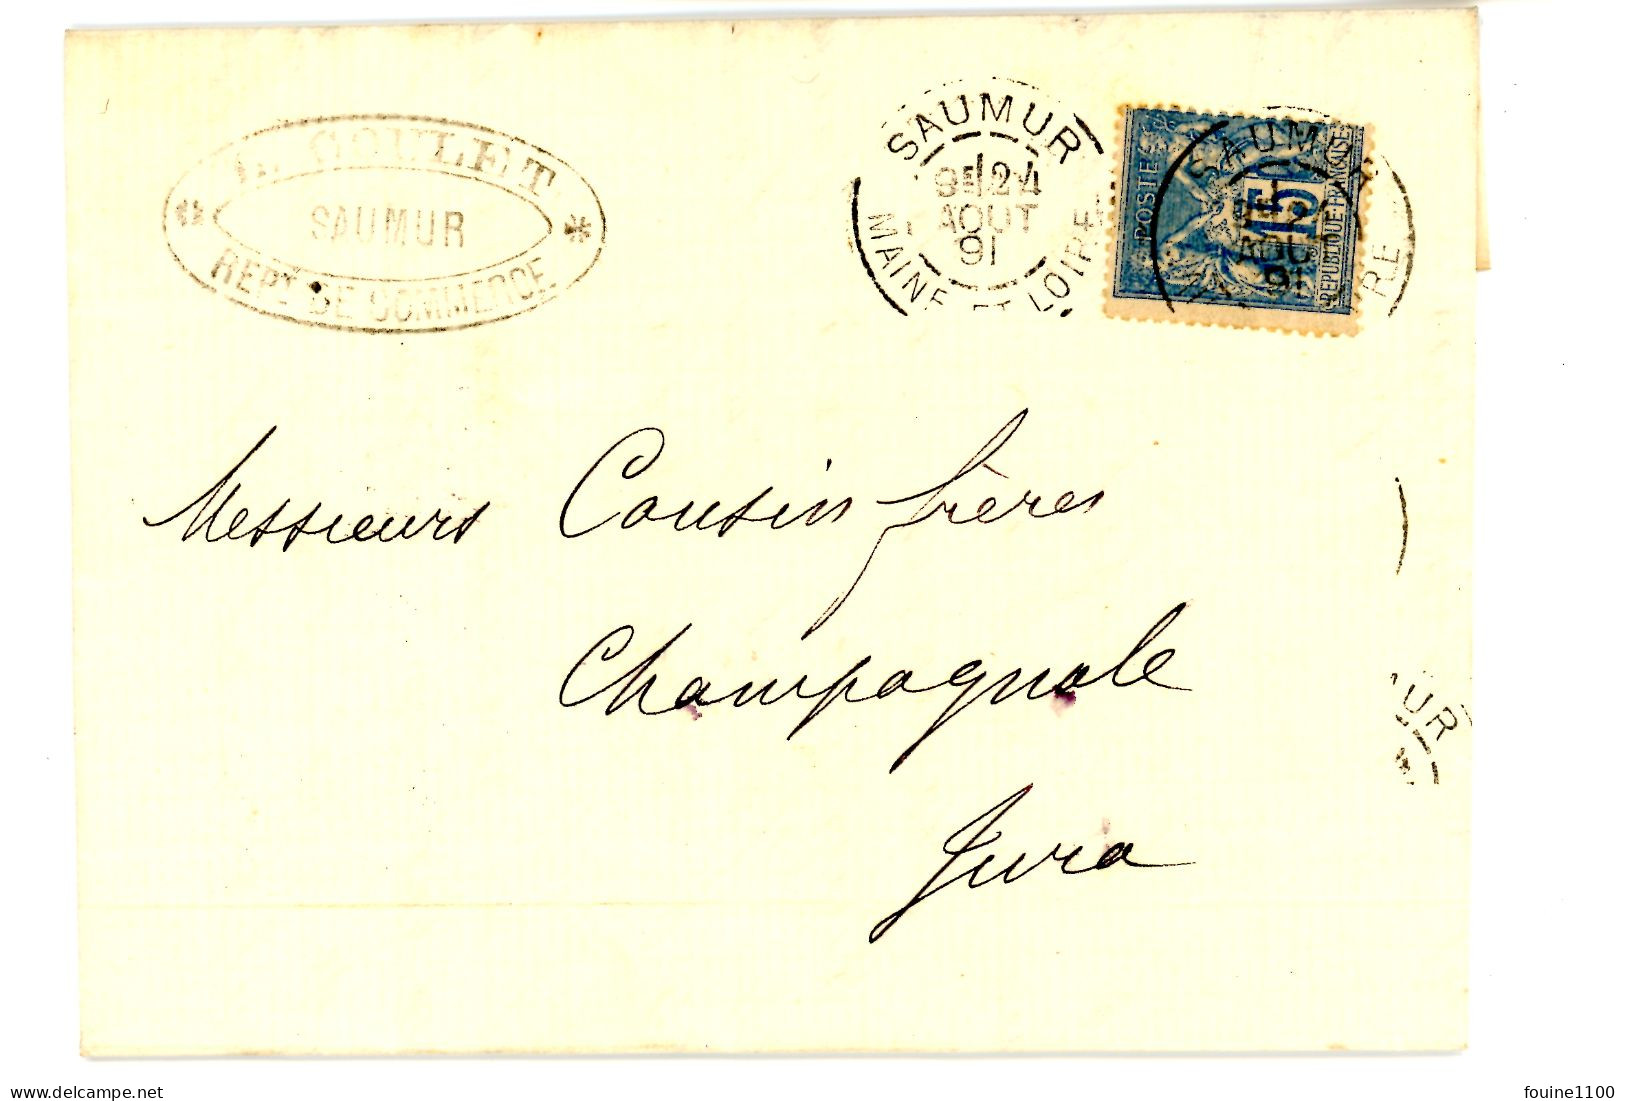 GOULET
SAUMUR
REPT DE COMMERCE
SAUMUR
24
AOUT
91
MAINE ET LOIRE
SAUMUR
AOU
91
RE
POSTES
15
REPUBLIQUE FRANÇAISE
Messieurs Cousin frères
Champagnole
Jura
UR
delcampe.net
fouine1100